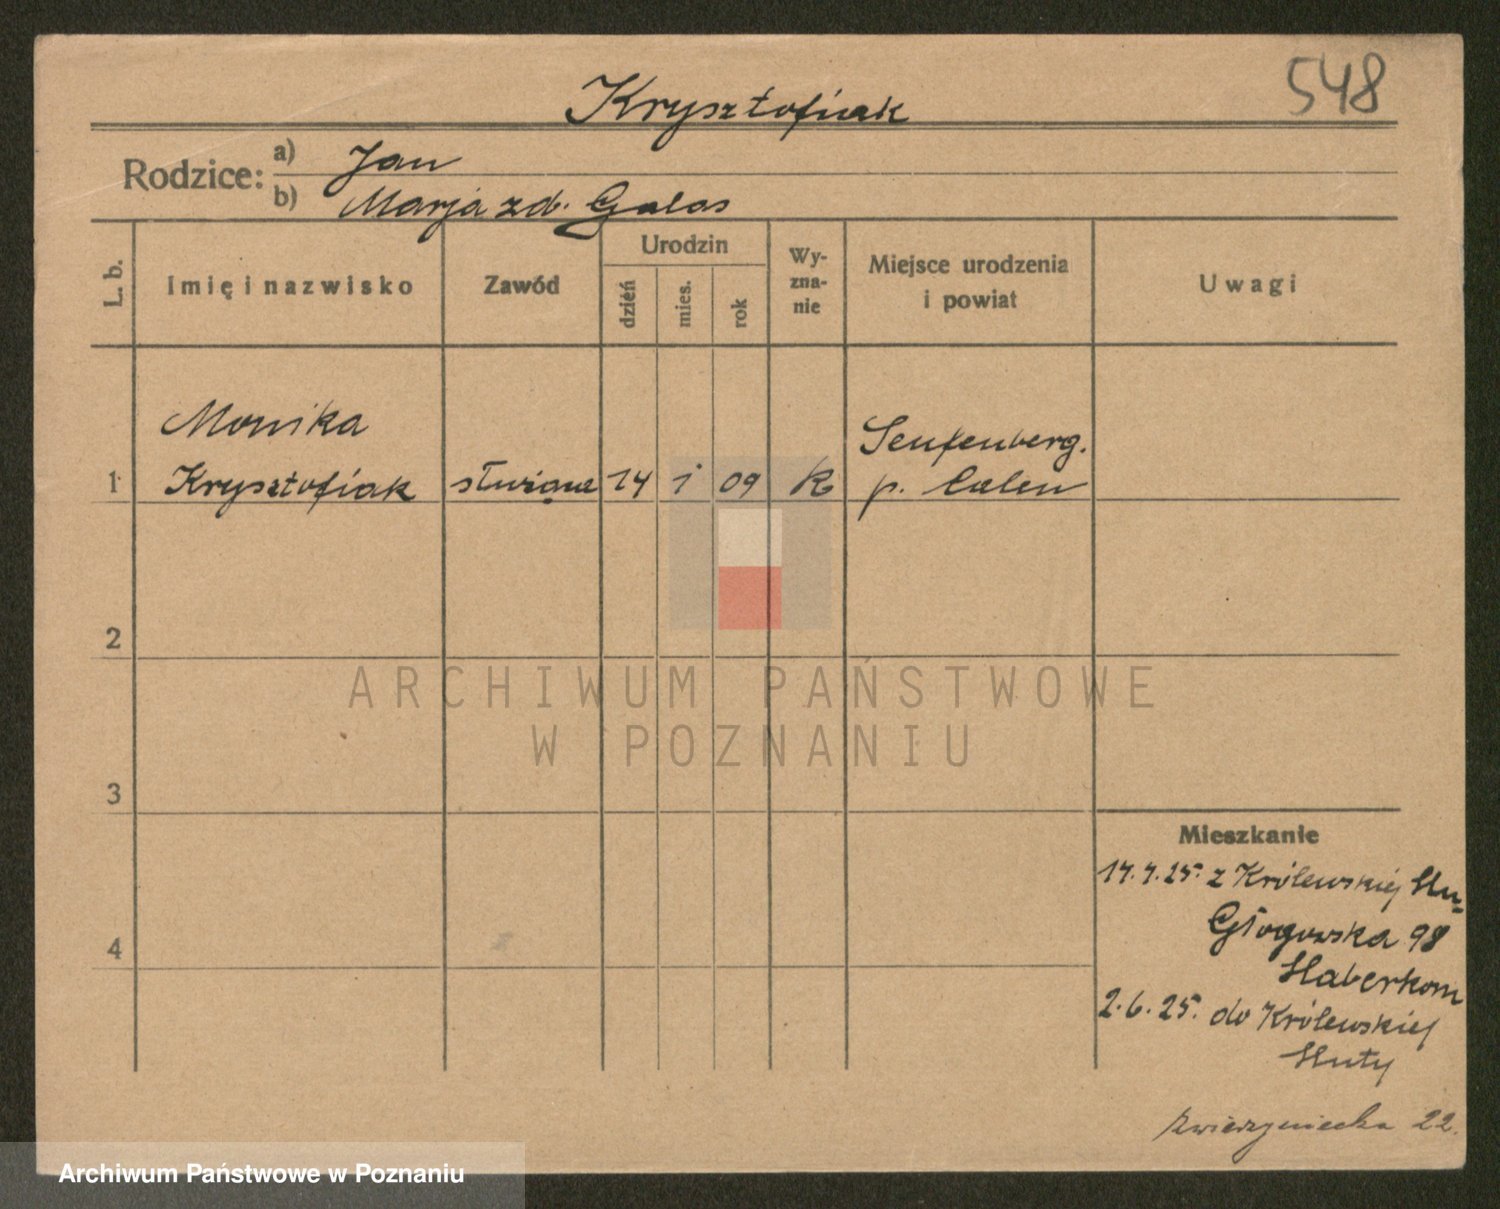 548
Krysztofiak
Rodzice:
a) Jan
b) Marja zd. Galas
L. b.
Imię i nazwisko
Zawód
Urodzin
dzień
mies.
rok
Wy-
zna-
nie
Miejsce urodzenia
i powiat
Uwagi
Monika
1 Krysztofiak służąca 14 1 09 R
Senftenberg.
p. Calau
2
3
4
ARCHIWUM PAŃSTWOWE
W POZNANIU
Mieszkanie
14.4.25. z Królewskiej Hu-
Głogowska 98
Haberkorn
2.6.25. do Królewskiej
Huty
Zwierzyniecka 22.
Archiwum Państwowe w Poznaniu